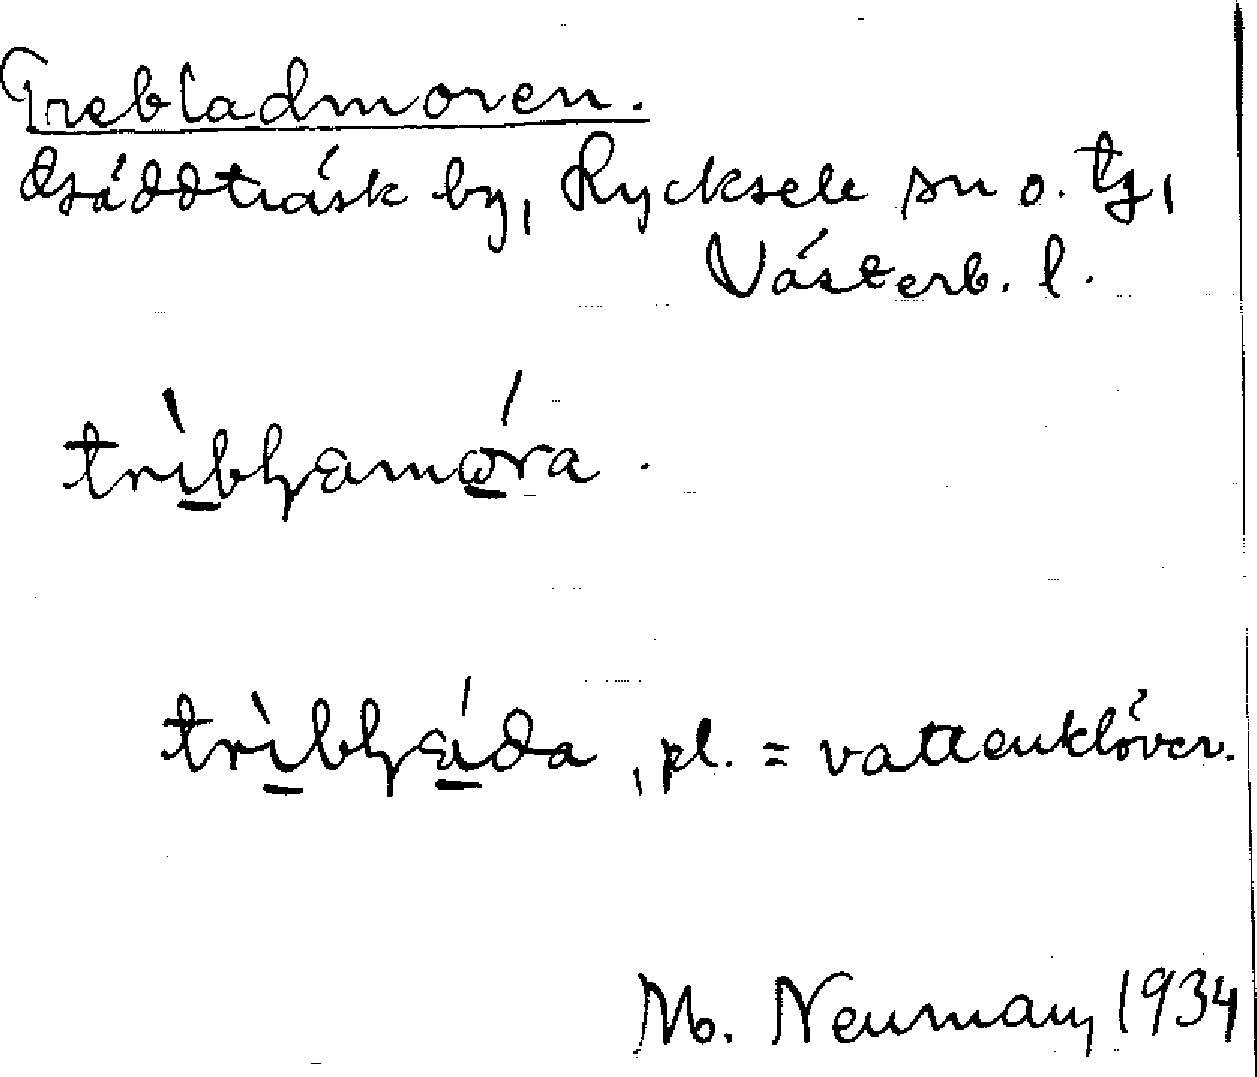 Trebladmoren.
Bräddträsk by, Rycksele sn o. tg,
Västerb. l.
trìblamóra.
trìbláda, pl. = vattenklöver.
M. Neuman, 1934